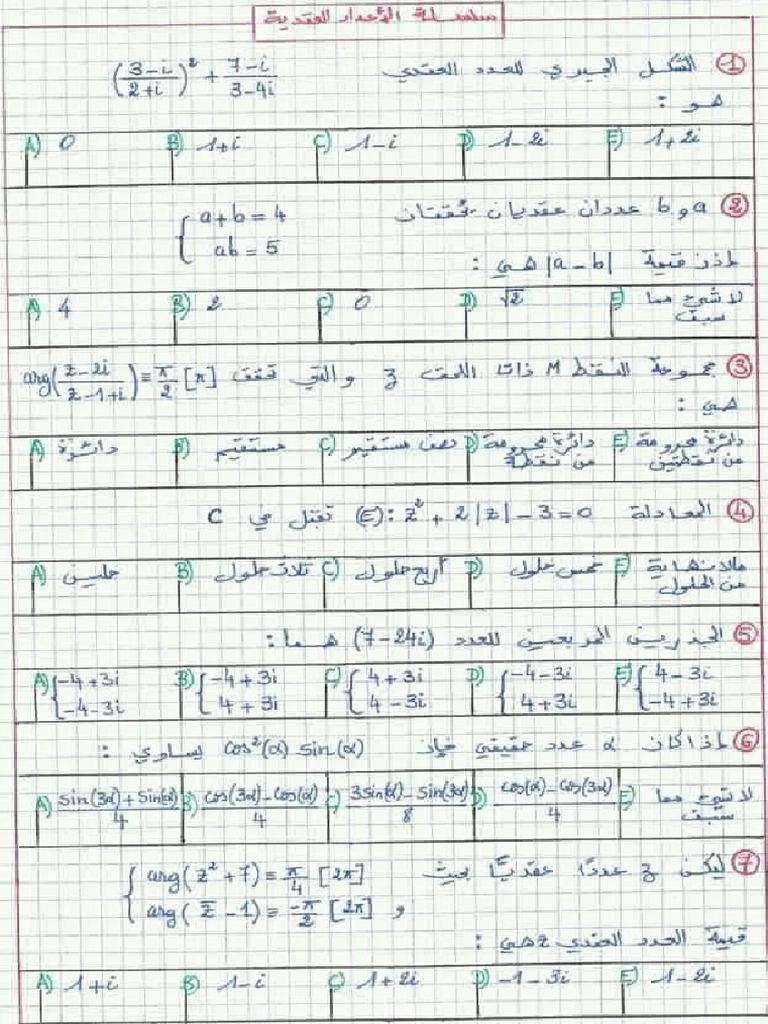 سلسلة الأعداد العقدية
1- الشكل الجبري للعدد العقدي (3-i/2+i)² + 7-i/3-4i
هو :
A) 0 B) 1+i C) 1-i D) 1-2i E) 1+2i
2 a و b عددان عقديان يحققان { a+b=4
ab=5
إذن قيمة |a-b| هي :
A) 4 B) 2 C) 0 D) √2 E) لا شيء مما سبق
3 مجموعة النقط M ذات اللحق z والتي تحقق arg(z-2i/z-1+i) ≡ π/2 [π]
هي :
A) دائرة B) مستقيم C) نصف مستقيم D) دائرة محرومة من نقطة E) دائرة محرومة من نقطتين
4 المعادلة (E): z² + 2|z| - 3 = 0 تقبل في C
A) حلين B) ثلاث حلول C) أربع حلول D) خمس حلول E) مالانهاية من الحلول
5 الجذرين المربعين للعدد (7-24i) هما :
A) { -4+3i -4-3i B) { -4+3i 4+3i C) { 4+3i 4-3i D) { -4-3i 4+3i E) { 4-3i -4+3i
6 إذا كان α عدد حقيقي فإن cos²(α) sin(α) يساوي :
A) sin(3α)+sin(α)/4 B) cos(3α)-cos(α)/4 C) 3sin(α)-sin(3α)/8 D) cos(α)-cos(3α)/4 E) لا شيء مما سبق
7 ليكن z عددا عقديا بحيث { arg(z²+7) ≡ π/4 [2π]
و arg(z̄-1) ≡ -π/2 [2π]
قيمة العدد العقدي z هي :
A) 1+i B) 1-i C) 1+2i D) -1-3i E) 1-2i